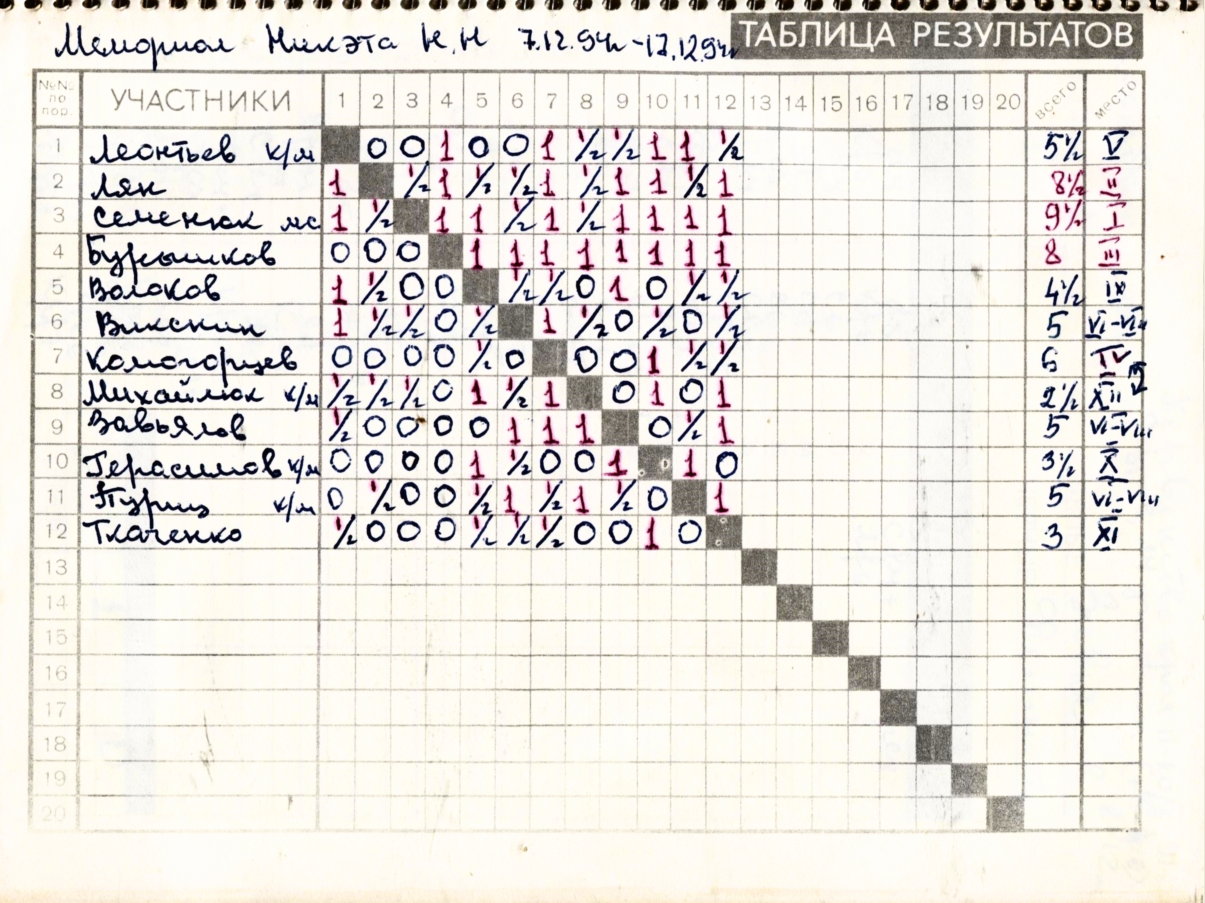 Мемориал Никэта Н.Н 7.12.94г-17.12.94г ТАБЛИЦА РЕЗУЛЬТАТОВ
№№ по пор. УЧАСТНИКИ 1 2 3 4 5 6 7 8 9 10 11 12 13 14 15 16 17 18 19 20 всего место
1 Леонтьев к/м 0 0 1 0 0 1 ½ ½ 1 1 ½ 5½ V
2 Ляк 1 ½ 1 ½ ½ 1 ½ 1 1 ½ 1 8½ II
3 Семенюк мс 1 ½ 1 1 ½ 1 ½ 1 1 1 1 9½ I
4 Бурошиков 0 0 0 1 1 1 1 1 1 1 1 8 III
5 Волоков 1 ½ 0 0 ½ ½ 0 1 0 ½ ½ 4½ IX
6 Викскин 1 ½ ½ 0 ½ 1 ½ 0 ½ 0 ½ 5 VI-VIII
7 Комогорцев 0 0 0 0 ½ 0 0 0 1 ½ ½ 6 IV
8 Михайлюк к/м ½ ½ ½ 0 1 ½ 1 0 1 0 1 2½ XII
9 Завьялов ½ 0 0 0 0 1 1 1 0 ½ 1 5 VI-VIII
10 Герасимов к/м 0 0 0 0 1 ½ 0 0 1 1 0 3½ X
11 Пуриц к/м 0 ½ 0 0 ½ 1 ½ 1 ½ 0 1 5 VI-VIII
12 Ткаченко ½ 0 0 0 ½ ½ ½ 0 0 1 0 3 XI
13
14
15
16
17
18
19
20